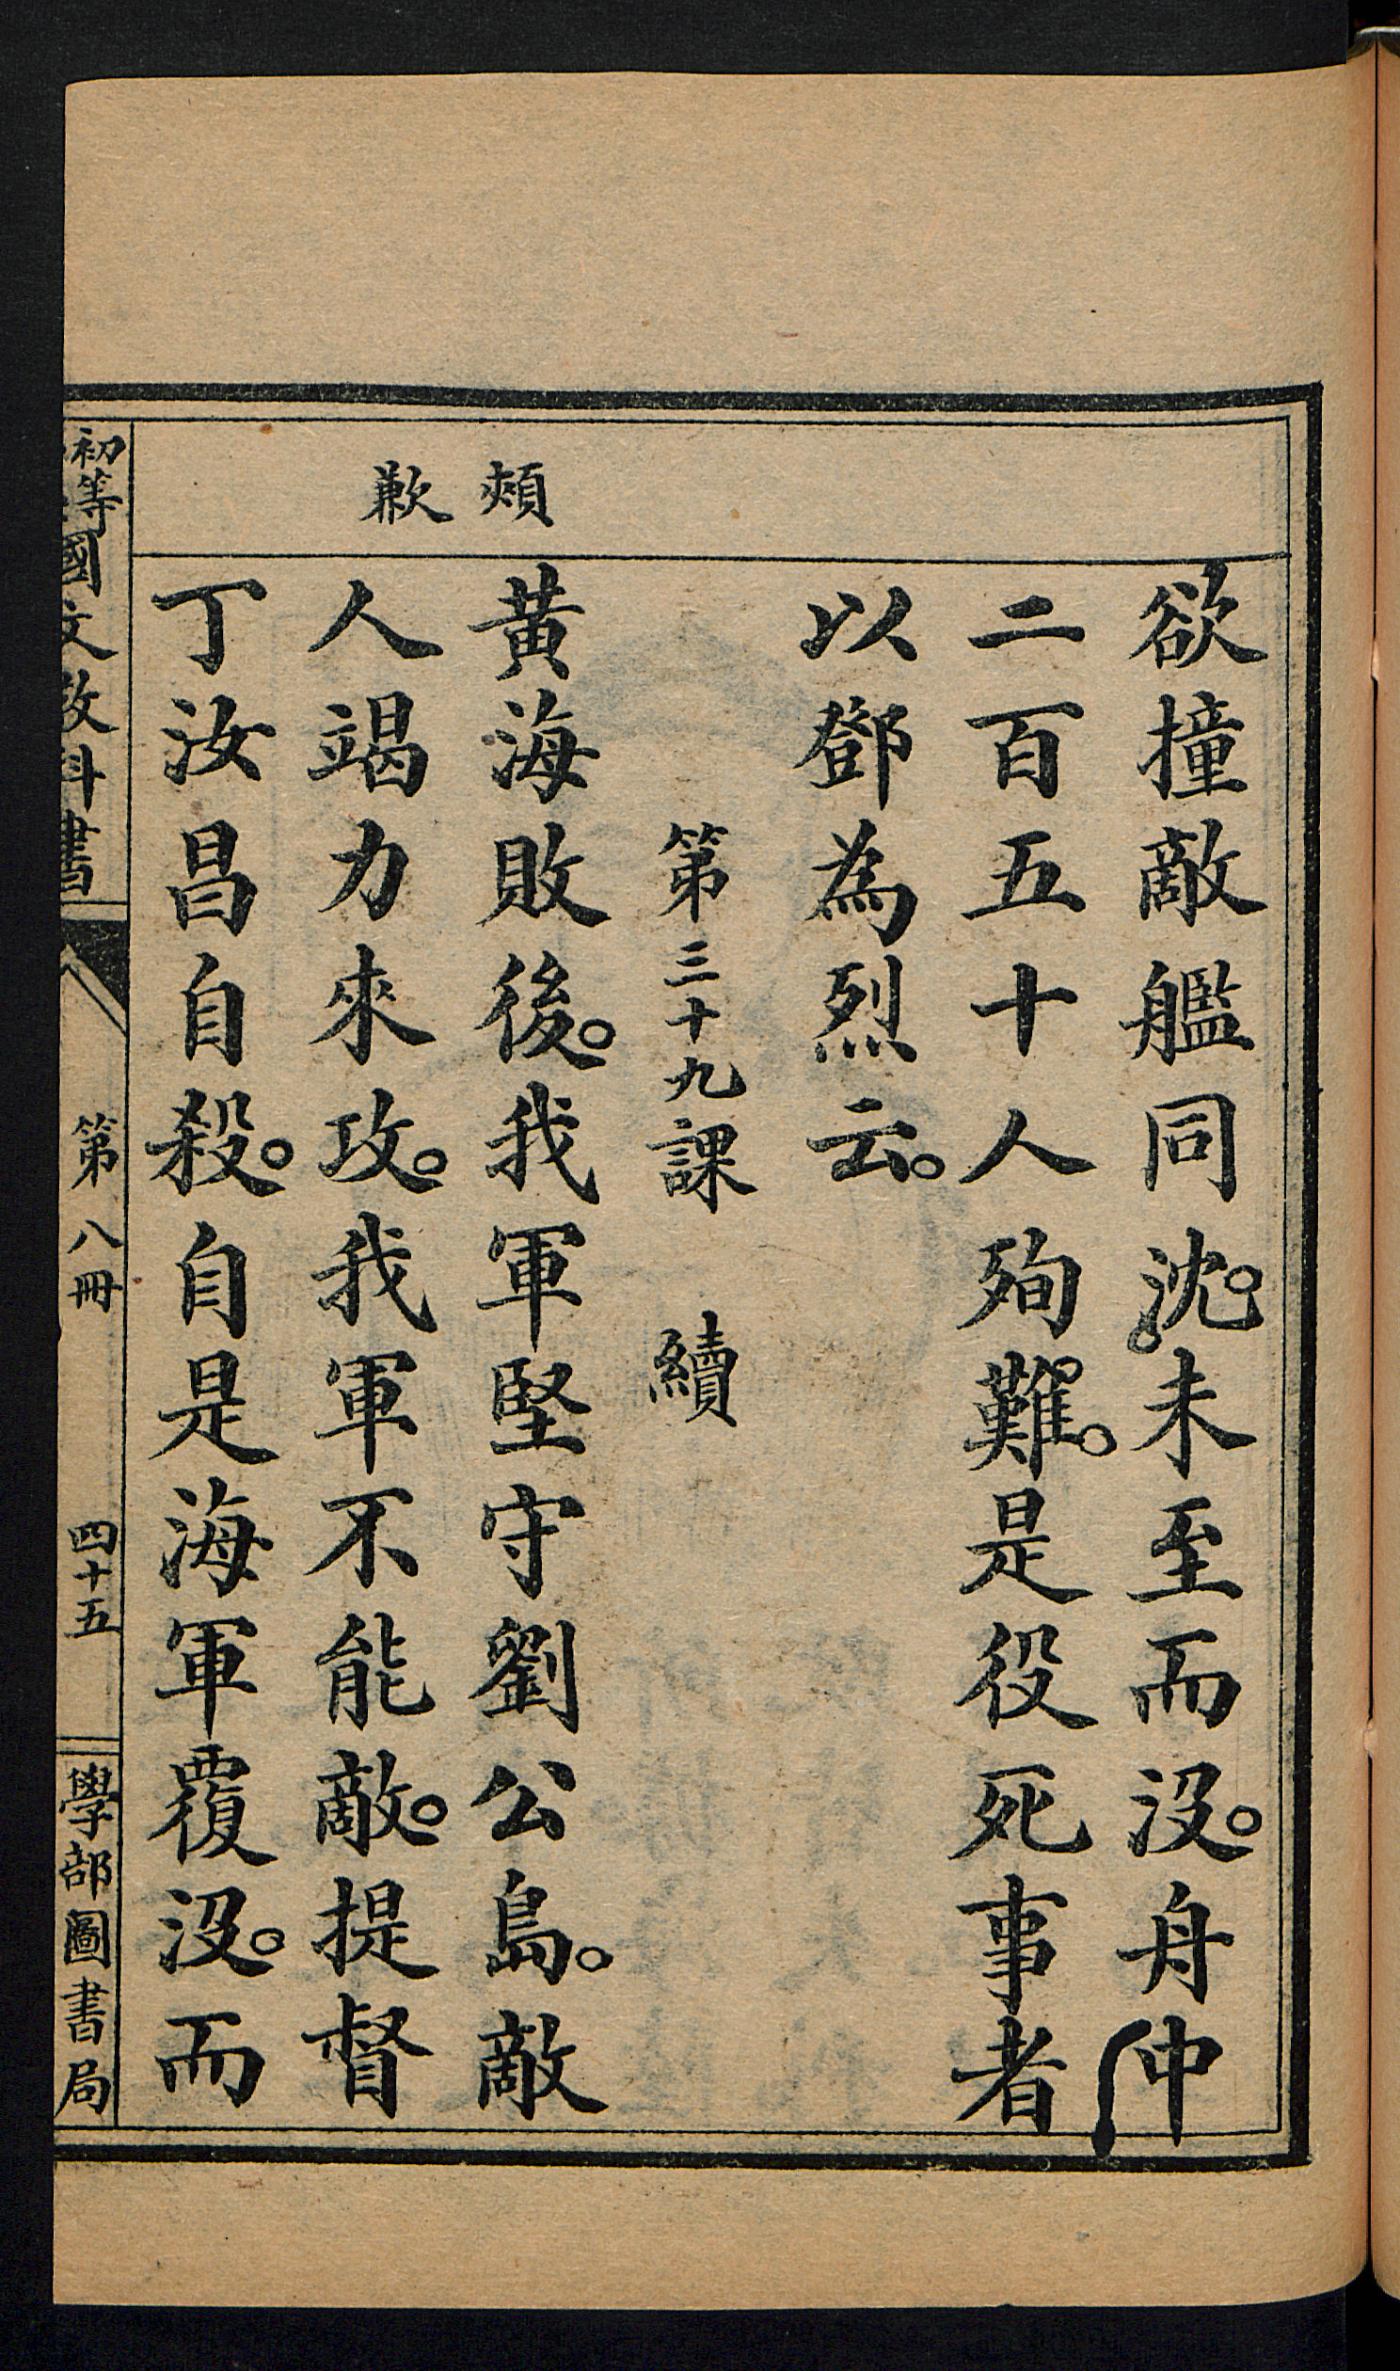 頰
歉
欲撞敵艦同沈。未至而沒。舟中
二百五十人殉難。是役死事者
以鄧為烈云。
第三十九課　續
黃海敗後。我軍堅守劉公島。敵
人竭力來攻。我軍不能敵。提督
丁汝昌自殺。自是海軍覆沒。而
初等國文教科書　第八冊　四十五　學部圖書局